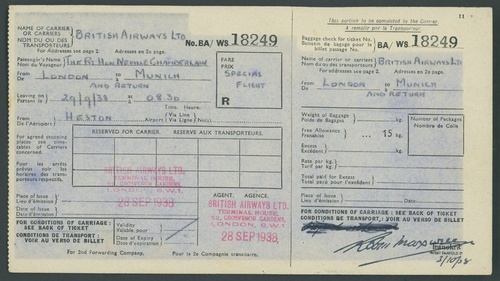 NAME OF CARRIER
OR CARRIERS
NOM DU OU DES
TRANSPORTEURS
BRITISH AIRWAYS LTD.
No. BA/ WS 18249
For Addresses see page 2. Adresses en 2e page.
Passenger's Name
Nom du Voyageur
THE RT. HON. NEVILLE CHAMBERLAIN
From
De
LONDON
to
à
MUNICH
AND RETURN
FARE
PRIX
SPECIAL
FLIGHT
R
Leaving on
Partant le
29/9/38
at
à
0830
Time. Heure.
From (Airport)
De (l'Aéroport)
HESTON
via (Air Line)
Via (Ligne)
For agreed stopping
places see time-
tables of Carriers
concerned.
Pour les arrêts
prévus voir les
horaires de transporteurs
respectifs.
RESERVED FOR CARRIER. RESERVE AUX TRANSPORTEURS.
BRITISH AIRWAYS LTD.
TERMINAL HOUSE,
GROSVENOR GARDENS,
LONDON, S.W.1.
28 SEP 1938
Place of Issue
Lieu d'émission
Date of Issue
Date d'émission
AGENT. AGENCE.
BRITISH AIRWAYS LTD.
TERMINAL HOUSE,
52, GROSVENOR GARDENS,
LONDON, S.W.1.
28 SEP 1938
FOR CONDITIONS OF CARRIAGE:
SEE BACK OF TICKET
CONDITIONS DE TRANSPORT:
VOIR AU VERSO DE BILLET
Validity
Valable pour
Date of Expiry
For 2nd Forwarding Company.
Pour la 2e Compagnie transitaire.
This portion to be completed by the Carrier.
A remplir par le Transporteur.
11
Baggage check for ticket No.
Bulletin de bagage pour le
billet passage No.
BA/ WS 18249
Name of carrier or carriers
Nom du ou des transporteurs
BRITISH AIRWAYS LTD
For Addresses see page 2.
Adresses en 2e page.
From
De
LONDON
to
à
MUNICH
AND RETURN
Weight of Baggage
Poids de Bagages
Free Allowance
Franchise
15 kg.
Excess
Excédent
kg.
Rate per kg.
Tarif par kg.
Total paid for Excess
Total payé pour l'excédent
Number of Packages
Nombre de Colis
Place of Issue
Lieu d'émission
Date of Issue
Date d'émission
FOR CONDITIONS OF CARRIAGE: SEE BACK OF TICKET
CONDITIONS DE TRANSPORT: VOIR AU VERSO DE BILLET